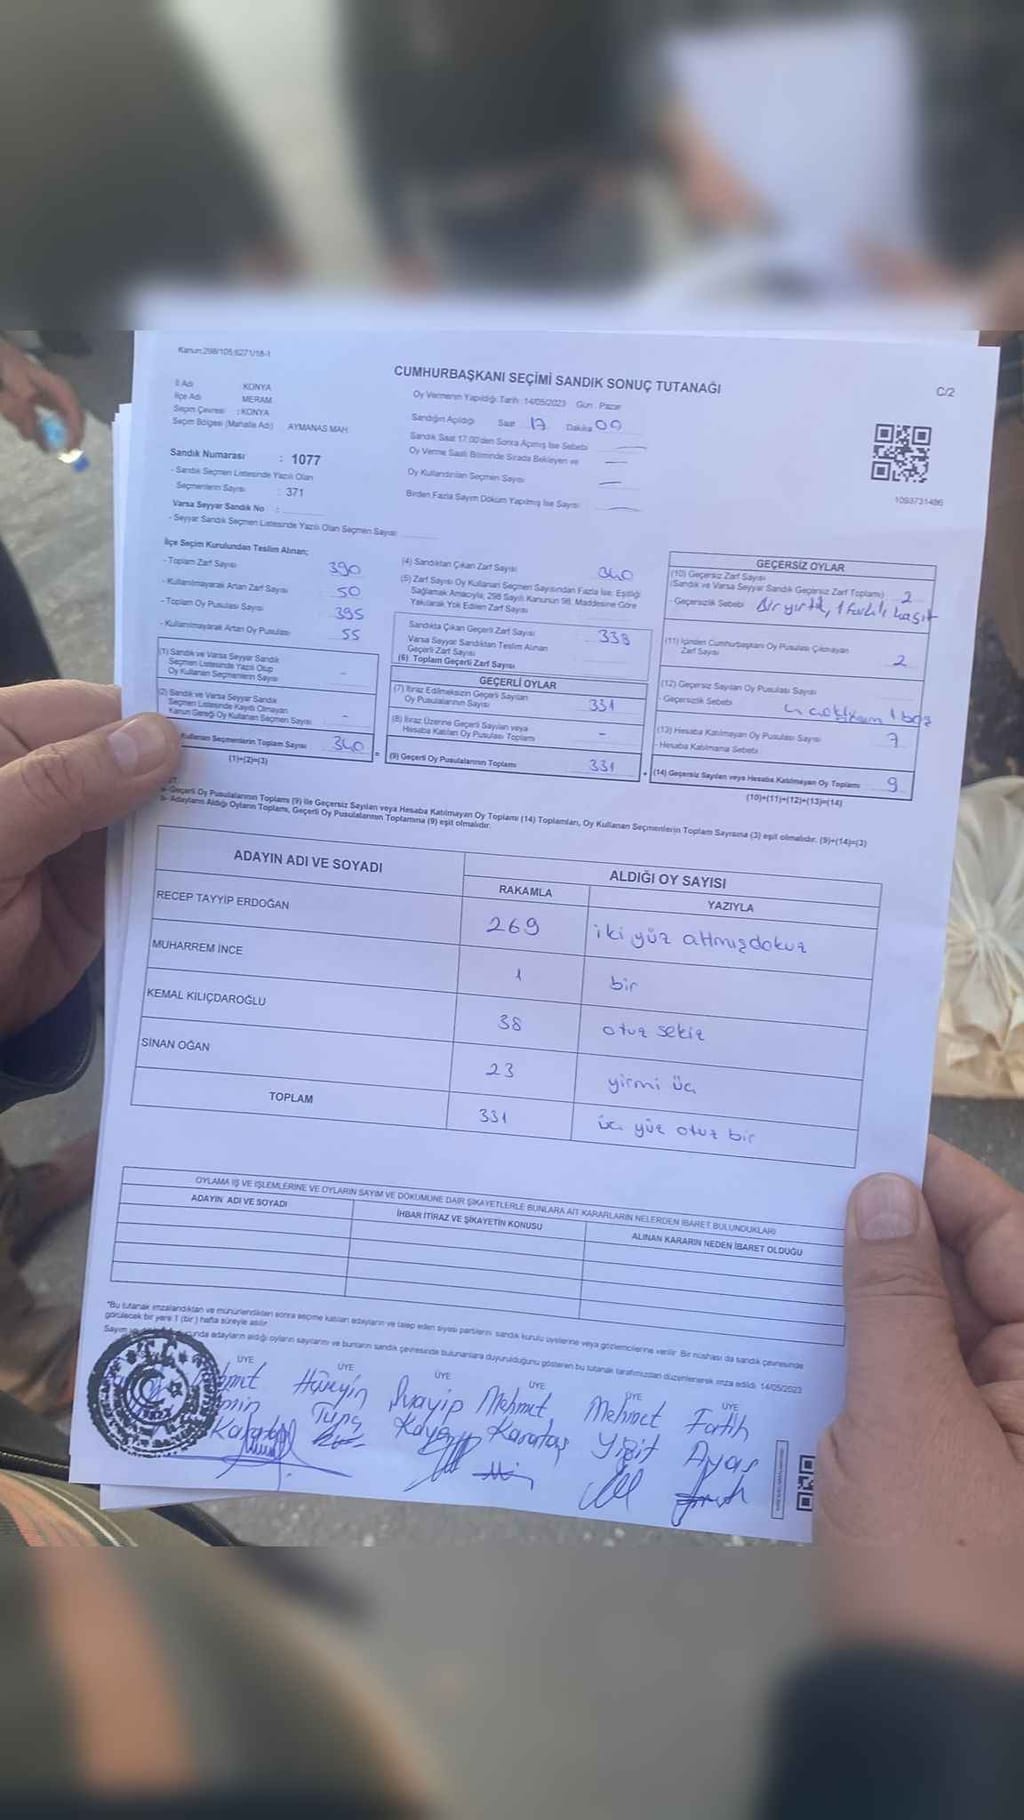 Kanun:298/105;6271/18-1
CUMHURBAŞKANI SEÇİMİ SANDIK SONUÇ TUTANAĞI
C/2
İl Adı KONYA
İlçe Adı MERAM
Seçim Çevresi : KONYA
Seçim Bölgesi (Mahalle Adı) AYMANAS MAH.
Oy Vermenin Yapıldığı Tarih :14/05/2023 Gün : Pazar
Sandığın Açıldığı Saat 17 Dakika 00
Sandık Saat 17.00'den Sonra Açılmış İse Sebebi
Oy Verme Saati Bitiminde Sırada Bekleyen ve
Oy Kullandırılan Seçmen Sayısı
Birden Fazla Sayım Döküm Yapılmış İse Sayısı
1093731486
Sandık Numarası : 1077
- Sandık Seçmen Listesinde Yazılı Olan
Seçmenlerin Sayısı : 371
Varsa Seyyar Sandık No :
- Seyyar Sandık Seçmen Listesinde Yazılı Olan Seçmen Sayısı
İlçe Seçim Kurulundan Teslim Alınan;
- Toplam Zarf Sayısı 390
- Kullanılmayarak Artan Zarf Sayısı 50
- Toplam Oy Pusulası Sayısı 395
- Kullanılmayarak Artan Oy Pusulası 55
(1) Sandık ve Varsa Seyyar Sandık
Seçmen Listesinde Yazılı Olup
Oy Kullanan Seçmenlerin Sayısı -
(2) Sandık ve Varsa Seyyar Sandık
Seçmen Listesinde Kayıtlı Olmayan
Kanun Gereği Oy Kullanan Seçmen Sayısı -
Kullanan Seçmenlerin Toplam Sayısı 340
(1)+(2)=(3)
(4) Sandıktan Çıkan Zarf Sayısı 340
(5) Zarf Sayısı Oy Kullanan Seçmen Sayısından Fazla İse; Eşitliği
Sağlamak Amacıyla, 298 Sayılı Kanunun 98. Maddesine Göre
Yakılarak Yok Edilen Zarf Sayısı
Sandıkta Çıkan Geçerli Zarf Sayısı 338
Varsa Seyyar Sandıktan Teslim Alınan
Geçerli Zarf Sayısı
(6) Toplam Geçerli Zarf Sayısı
GEÇERLİ OYLAR
(7) İtiraz Edilmeksizin Geçerli Sayılan
Oy Pusulalarının Sayısı 331
(8) İtiraz Üzerine Geçerli Sayılan veya
Hesaba Katılan Oy Pusulası Toplamı -
(9) Geçerli Oy Pusulalarının Toplamı 331
GEÇERSİZ OYLAR
(10) Geçersiz Zarf Sayısı
(Sandık ve Varsa Seyyar Sandık Geçersiz Zarf Toplamı) 2
- Geçersizlik Sebebi Bir yırtık, 1 farklı kaşıt
(11) İçinden Cumhurbaşkanı Oy Pusulası Çıkmayan
Zarf Sayısı 2
(12) Geçersiz Sayılan Oy Pusulası Sayısı
- Geçersizlik Sebebi 1 boş
(13) Hesaba Katılmayan Oy Pusulası Sayısı 7
- Hesaba Katılmama Sebebi
(14) Geçersiz Sayılan veya Hesaba Katılmayan Oy Toplamı 9
(10)+(11)+(12)+(13)=(14)
a- Geçerli Oy Pusulalarının Toplamı (9) ile Geçersiz Sayılan veya Hesaba Katılmayan Oy Toplamı (14) Toplamları, Oy Kullanan Seçmenlerin Toplam Sayısına (3) eşit olmalıdır. (9)+(14)=(3)
b- Adayların Aldığı Oyların Toplamı, Geçerli Oy Pusulalarının Toplamına (9) eşit olmalıdır.
ADAYIN ADI VE SOYADI
ALDIĞI OY SAYISI
RAKAMLA YAZIYLA
RECEP TAYYİP ERDOĞAN 269 iki yüz altmışdokuz
MUHARREM İNCE 1 bir
KEMAL KILIÇDAROĞLU 38 otuz sekiz
SİNAN OĞAN 23 yirmi üç
TOPLAM 331 üç yüz otuz bir
OYLAMA İŞ VE İŞLEMLERİNE VE OYLARIN SAYIM VE DÖKÜMÜNE DAİR ŞİKAYETLERLE BUNLARA AİT KARARLARIN NELERDEN İBARET BULUNDUKLARI
ADAYIN ADI VE SOYADI
İHBAR İTİRAZ VE ŞİKAYETİN KONUSU
ALINAN KARARIN NEDEN İBARET OLDUĞU
*Bu tutanak imzalandıktan ve mühürlendikten sonra seçime katılan adayların ve talep eden siyasi partilerin sandık kurulu üyelerine veya gözlemcilerine verilir. Bir nüshası da sandık çevresinde
görülecek bir yere 1 (bir) hafta süreyle asılır.
Sayım ve adayların aldığı oyların sayılarını ve bunların sandık çevresinde bulunanlara duyurulduğunu gösteren bu tutanak tarafımızdan düzenlenerek imza edildi. 14/05/2023
ÜYE ÜYE ÜYE ÜYE ÜYE ÜYE
Hüseyin Şuayip Mehmet Mehmet Fatih
Tunç Karataş Yiğit Ayas